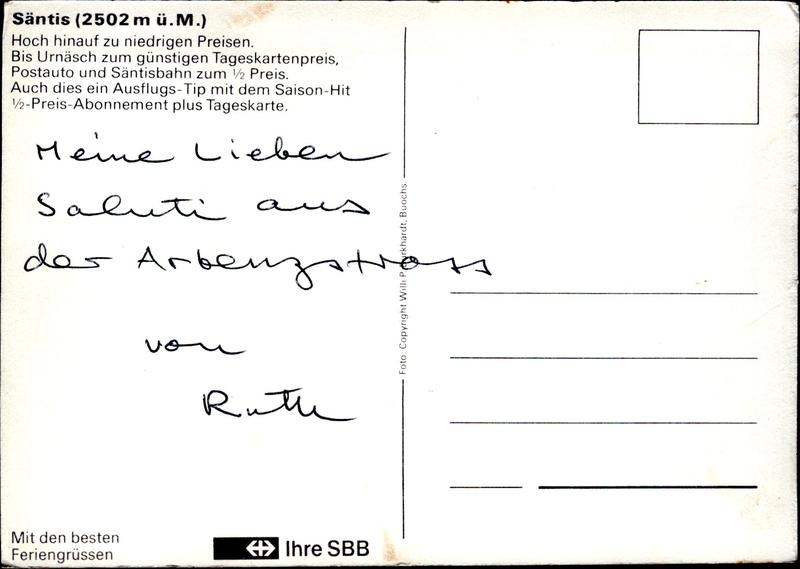 Säntis (2502 m ü.M.)
Hoch hinauf zu niedrigen Preisen.
Bis Urnäsch zum günstigen Tageskartenpreis,
Postauto und Säntisbahn zum ½ Preis.
Auch dies ein Ausflugs-Tip mit dem Saison-Hit
½-Preis-Abonnement plus Tageskarte.
Meine Lieben
Saluti aus
der Arbenzstrass
von
Ruth
Mit den besten
Feriengrüssen
Ihre SBB
Foto: Copyright Willi P. Burkhardt, Buochs.